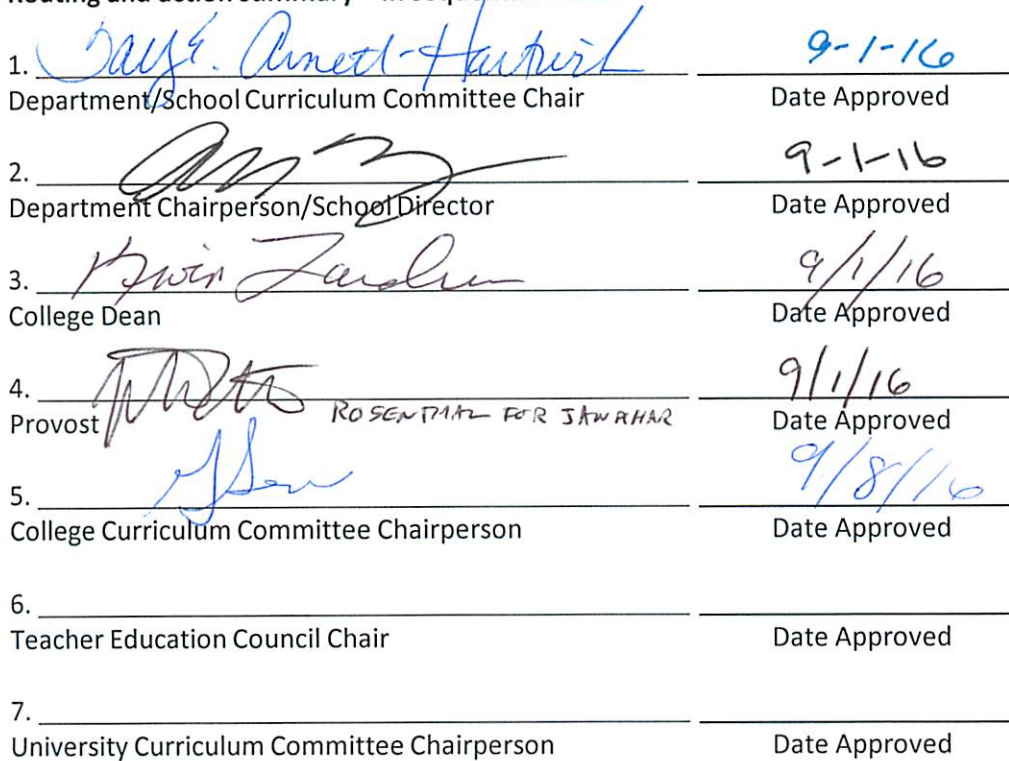 Routing and action summary – in sequ
1. Gay E. Arnett-Hartwick 9-1-16
Department/School Curriculum Committee Chair Date Approved
2. 9-1-16
Department Chairperson/School Director Date Approved
3. 9/1/16
College Dean Date Approved
4. ROSENTHAL FOR JAWAHAR 9/1/16
Provost Date Approved
5. 9/8/16
College Curriculum Committee Chairperson Date Approved
6.
Teacher Education Council Chair Date Approved
7.
University Curriculum Committee Chairperson Date Approved